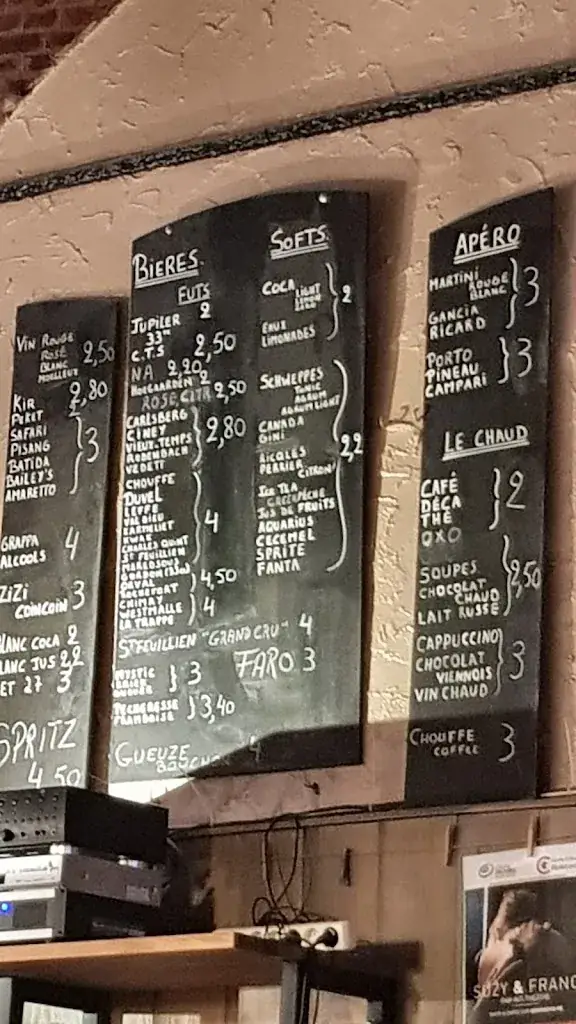 VIN ROUGE
ROSÉ
BLANC 2,50
MOELLEUX
KIR 2,80
PEKET
SAFARI
PISANG 3
BATIDA
BAILEY'S
AMARETTO
GRAPPA 4
ALCOOLS
ZIZI
COINCOIN 3
LANC COLA 2
LANC JUS 2,2
ET 27 3
SPRITZ
4,50
BIERES
FUTS
JUPILER 2
33"
C.T.S 2,50
NA 2,20
HOEGAARDEN 2
ROSÉE, CITR 2,50
CARLSBERG
CINEY
VIEUX-TEMPS 2,80
RODENBACH
VEDETT
CHOUFFE
DUVEL
LEFFE
VAL DIEU
KARMELIET 4
KWAK
CHARLES QUINT
ST FEUILLIEN
MAREDSOUS
GORDON
ORVAL 4,50
ROCHEFORT
CHIMAY
WESTMALLE 4
LA TRAPPE
ST FEUILLIEN "GRAND CRU" 4
MYSTIC 3
FARO 3
PECHERESSE 3,40
FRAMBOISE
GUEUZE 4
SOFTS
COCA LIGHT
LEMON
ZERO 2
EAUX
LIMONADES
SCHWEPPES
TONIC
AGRUM
AGRUM LIGHT
CANADA
GINI 2,2
RICQLES
PERRIER
CITRON
ICE TEA
JUS DE FRUITS
AQUARIUS
CECEMEL
SPRITE
FANTA
APÉRO
MARTINI ROUGE
BLANC 3
GANCIA
RICARD
PORTO
PINEAU 3
CAMPARI
LE CHAUD
CAFÉ
DÉCA 2
THÉ
OXO
SOUPES
CHOCOLAT
CHAUD 2,50
LAIT RUSSE
CAPPUCCINO
CHOCOLAT 3
VIENNOIS
VIN CHAUD
CHOUFFE
COFFEE 3
SUZY & FRANC